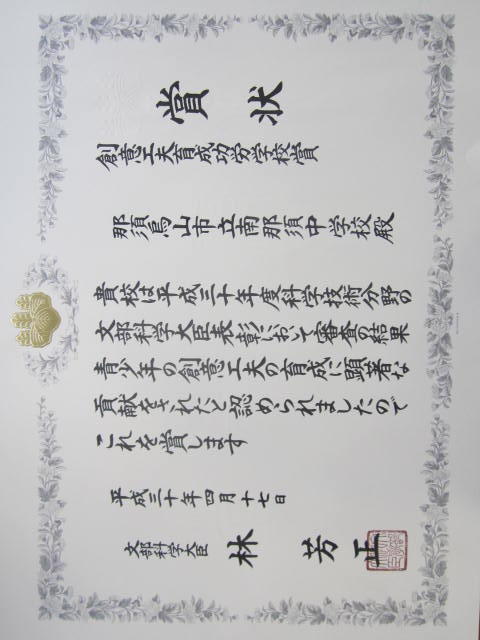 賞状
創意工夫育成功労学校賞
那須烏山市立南那須中学校殿
貴校は平成三十年度科学技術分野の
文部科学大臣表彰において審査の結果
青少年の創意工夫の育成に顕著な
貢献をされたと認められましたので
これを賞します
平成三十年四月十七日
文部科学大臣 林芳正